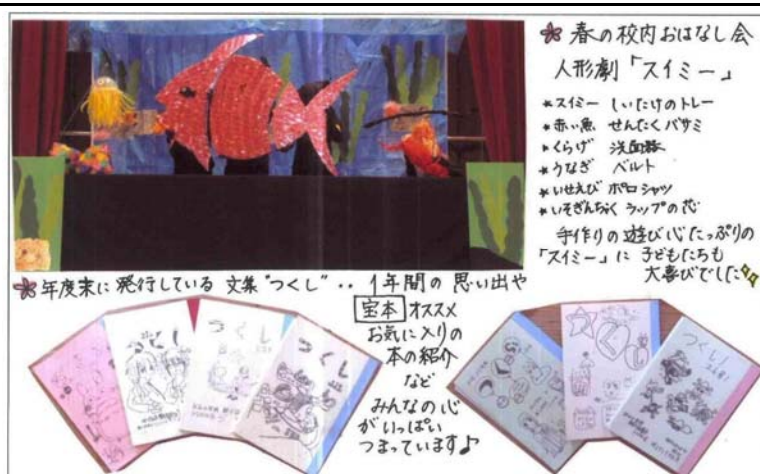 春の校内おはなし会
人形劇「スイミー」
*スイミー しいたけのトレー
*赤い魚 せんたくバサミ
*くらげ 洗面器
*うなぎ ベルト
*いせえび ポロシャツ
*いそぎんちゃく ラップの芯
手作りの遊び心たっぷりの
「スイミー」に 子どもたちも
大喜びでした
年度末に発行している 文集"つくし"‥ 1年間の思い出や
宝本 オススメ
お気に入りの
本の紹介
など
みんなの心
がいっぱい
つまっています♪
つくし
つくし
つくし
つくし